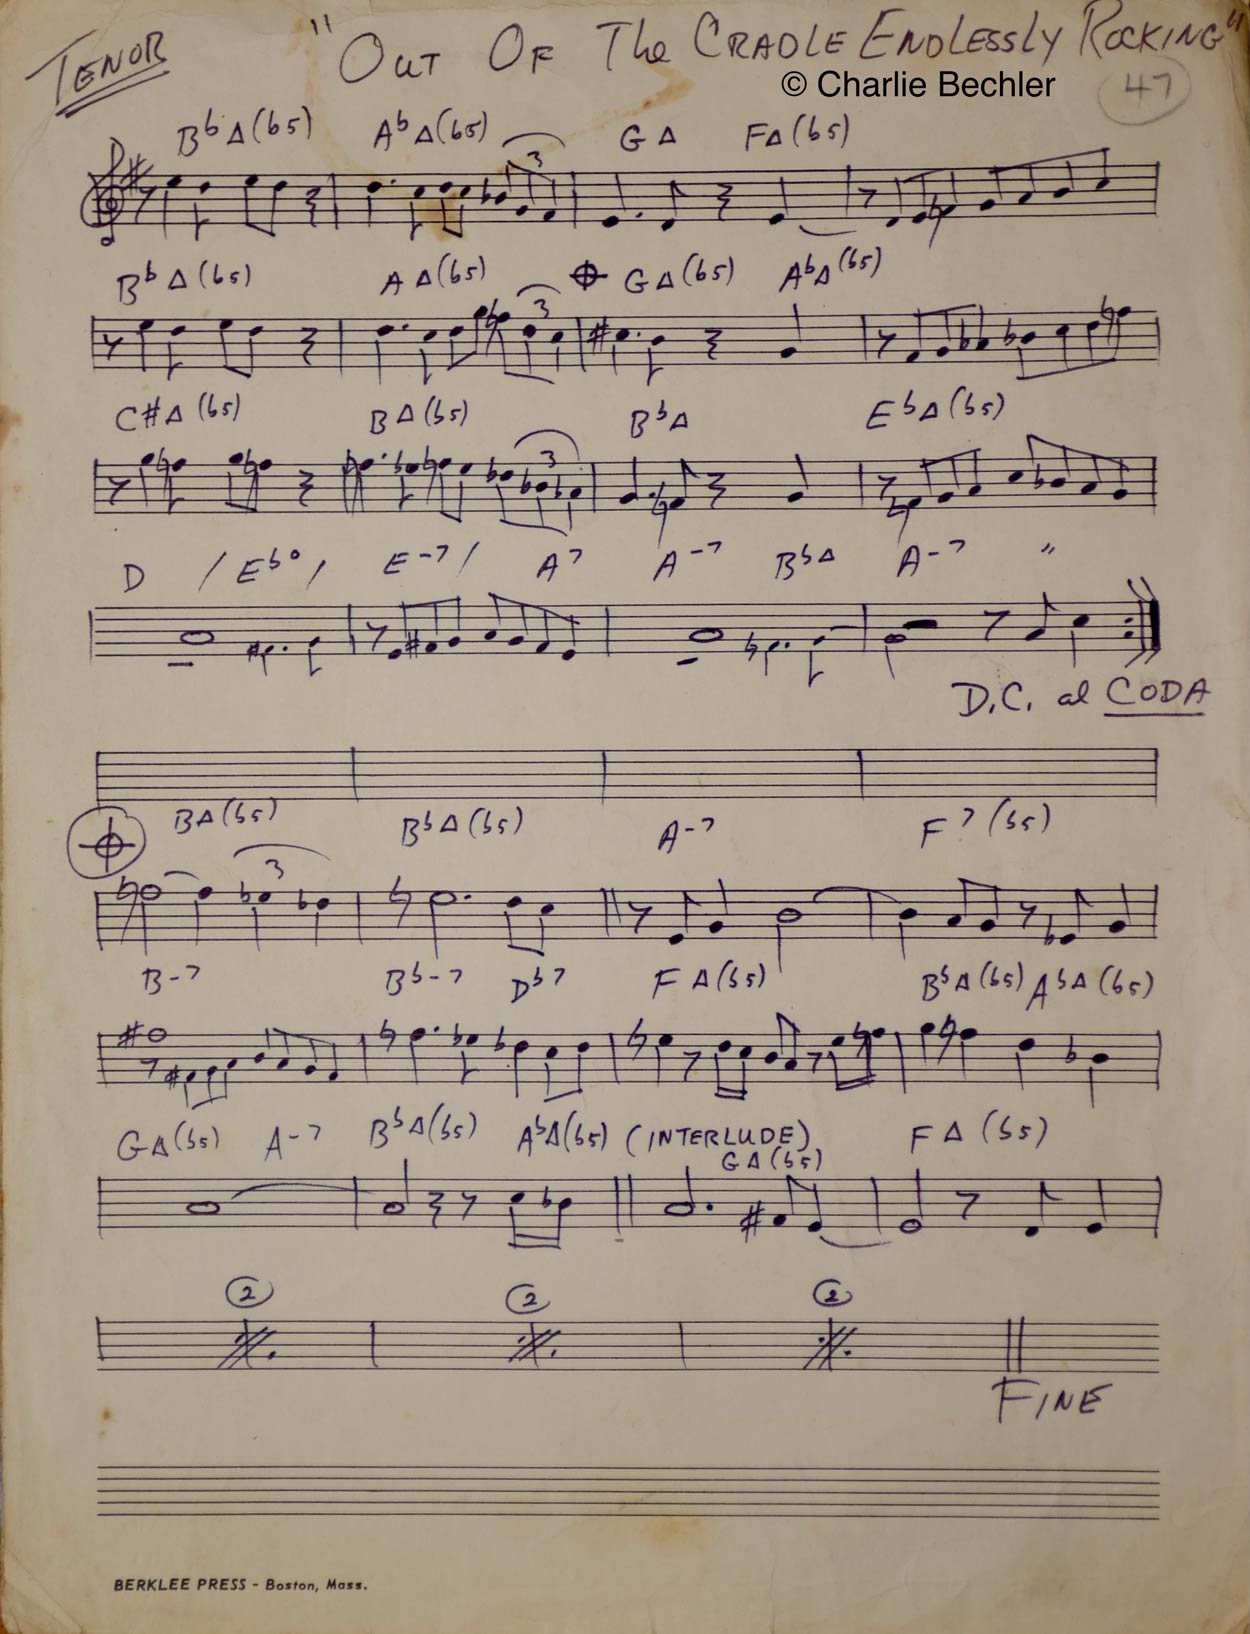 TENOR
"OUT OF The CRADLE ENDLESSLY ROCKING"
© Charlie Bechler
47
B♭Δ(♭5) A♭Δ(♭5) 3 GΔ FΔ(♭5)
B♭Δ(♭5) AΔ(♭5) 3 GΔ(♭5) A♭Δ(♭5)
C#Δ(♭5) BΔ(♭5) 3 B♭Δ E♭Δ(♭5)
D / E♭° / E-7 / A7 A-7 B♭Δ A-7 "
D.C. al CODA
BΔ(♭5) 3 B♭Δ(♭5) A-7 F7(♭5)
B-7 B♭-7 D♭7 FΔ(♭5) B♭Δ(♭5) A♭Δ(♭5)
GΔ(♭5) A-7 B♭Δ(♭5) A♭Δ(♭5) (INTERLUDE) GΔ(♭5) FΔ(♭5)
2 2 2
FINE
BERKLEE PRESS - Boston, Mass.